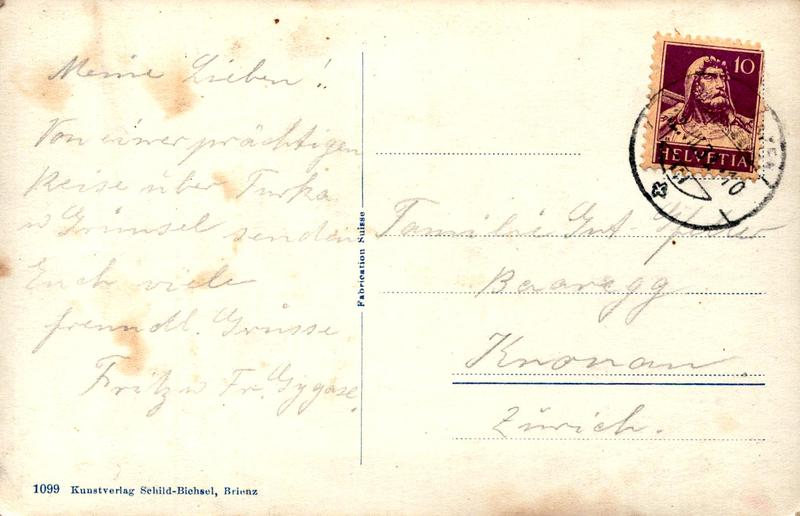 Meine Lieben!
Von einer prächtigen
Reise über Furka
u Grimsel senden
Euch viele
freundl. Grüsse
Fritz u Fr. Gygax.
Fabrication Suisse
10
HELVETIA
Familie Gut-
Baaregg
Knonau.
Zürich.
1099 Kunstverlag Schild-Bichsel, Brienz